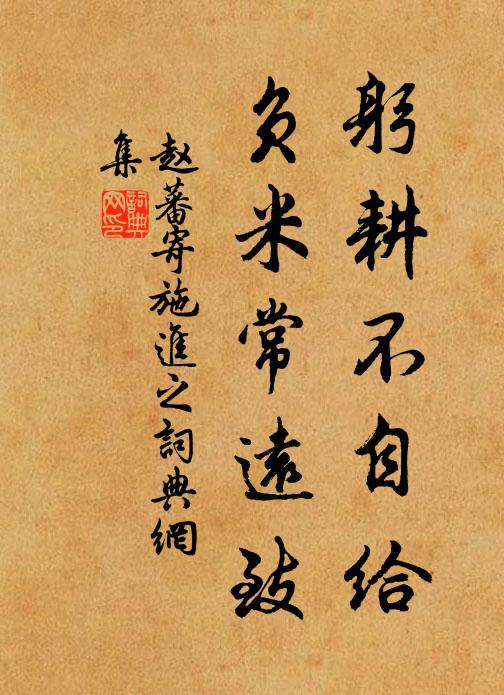 躬耕不自给
负米常遠致
赵蕃寄施進之詞典網
集
詞典
网印